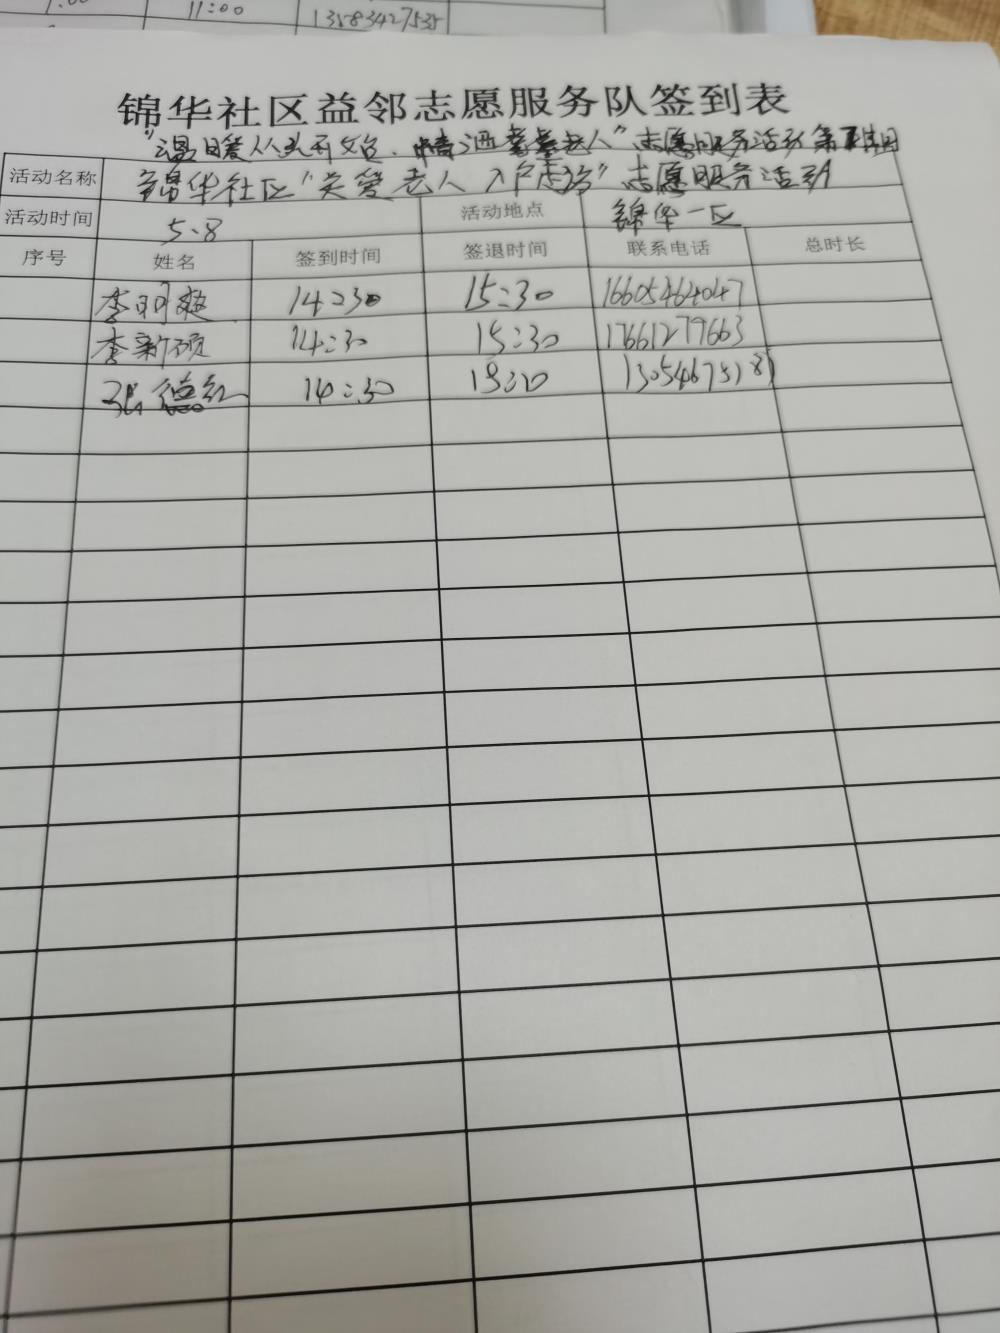 11:00 13583427535
锦华社区益邻志愿服务队签到表
"温暖人心 老人"志愿服务活动第 期
活动名称 锦华社区"关爱老人 入户走访"志愿服务活动
活动时间 5.8 活动地点 锦华一区
序号 姓名 签到时间 签退时间 联系电话 总时长
李明爽 14:30 15:30 16605464047
李新硕 14:30 15:30 17661279663
张德红 14:30 15:30